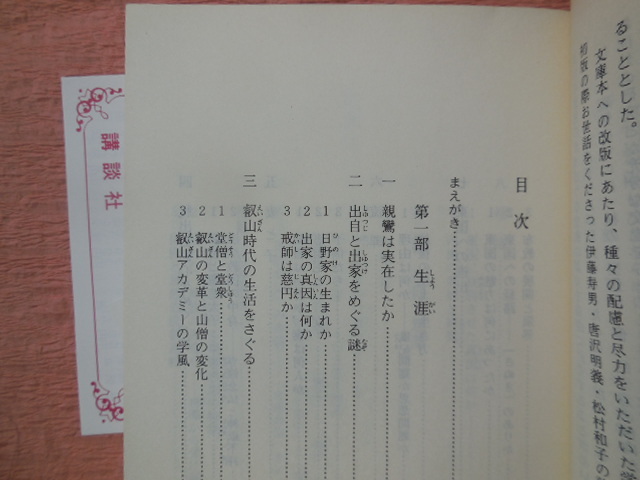 ることとした。
文庫本への改版にあたり、種々の配慮と尽力をいただいた学
初版の際お世話をくださった伊藤寿男・唐沢明義・松村和子の
目次
まえがき
第一部 生涯
一 親鸞は実在したか
二 出自と出家をめぐる謎
1 日野家の生まれか
2 出家の真因は何か
3 戒師は慈円か
三 叡山時代の生活をさぐる
1 堂僧と堂衆
2 叡山の変革と山僧の変化
3 叡山アカデミーの学風
講談社